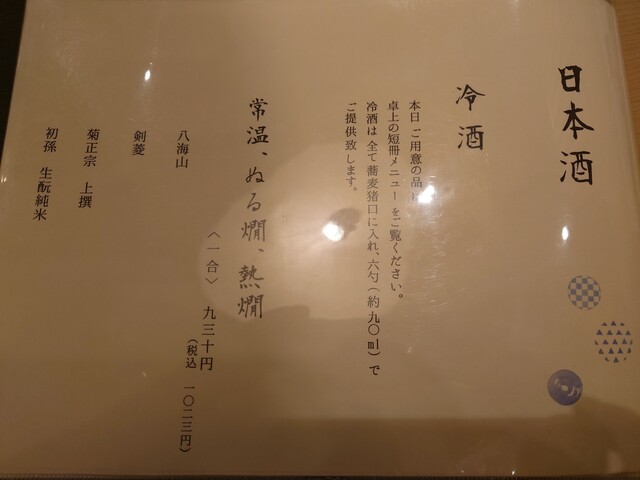 日本酒
冷酒
本日ご用意の品は
卓上の短冊メニューをご覧ください。
冷酒は全て蕎麦猪口に入れ、六勺(約九〇ml)で
ご提供致します。
常温、ぬる燗、熱燗
〈一合〉 九三十円
(税込 一〇二三円)
八海山
剣菱
菊正宗 上撰
初孫 生酛純米